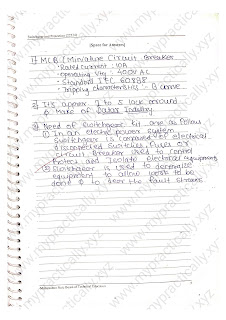 (Space for Answers)
1] MCB (Miniature Circuit Breaker
· Rated current : 10A
· Operating Vtg : 400V AC
· Standard IEC 60898
· Tripping characteristics :- B curve
2] It's approx 2 to 5 lack around
& make of
3] Need of switchgear
1) In an electric power system
switchgear is composed of electrical
disconnected switches, fuses or
circuit Breaker used to control
Protect and Isolate electrical equipments
2) Switchgear is used to
equipment to allow work to be
done & to clear the fault
Maharashtra State Board of Technical Education
www.mypractically.xyz